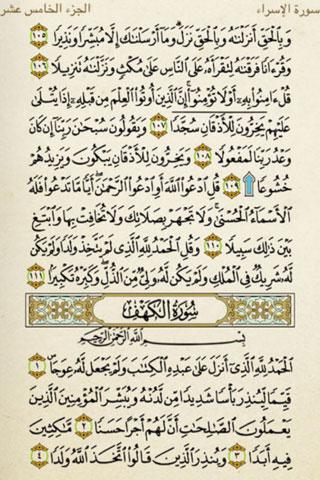 سورة الإسراء الجزء الخامس عشر
وَبِالْحَقِّ أَنزَلْنَٰهُ وَبِالْحَقِّ نَزَلَ ۗ وَمَا أَرْسَلْنَٰكَ إِلَّا مُبَشِّرًا وَنَذِيرًا
١٠٥ وَقُرْءَانًا فَرَقْنَٰهُ لِتَقْرَأَهُ عَلَى النَّاسِ عَلَىٰ مُكْثٍ وَنَزَّلْنَٰهُ تَنزِيلًا ١٠٦
قُلْ ءَامِنُوا بِهِ أَوْ لَا تُؤْمِنُوا ۚ إِنَّ الَّذِينَ أُوتُوا الْعِلْمَ مِن قَبْلِهِ إِذَا يُتْلَىٰ
عَلَيْهِمْ يَخِرُّونَ لِلْأَذْقَانِ سُجَّدًا ١٠٧ وَيَقُولُونَ سُبْحَٰنَ رَبِّنَا إِن كَانَ
وَعْدُ رَبِّنَا لَمَفْعُولًا ١٠٨ وَيَخِرُّونَ لِلْأَذْقَانِ يَبْكُونَ وَيَزِيدُهُمْ
خُشُوعًا ١٠٩ قُلِ ادْعُوا اللَّهَ أَوِ ادْعُوا الرَّحْمَٰنَ ۖ أَيًّا مَّا تَدْعُوا فَلَهُ
الْأَسْمَاءُ الْحُسْنَىٰ ۚ وَلَا تَجْهَرْ بِصَلَاتِكَ وَلَا تُخَافِتْ بِهَا وَابْتَغِ
بَيْنَ ذَٰلِكَ سَبِيلًا ١١٠ وَقُلِ الْحَمْدُ لِلَّهِ الَّذِي لَمْ يَتَّخِذْ وَلَدًا وَلَمْ يَكُن
لَّهُ شَرِيكٌ فِي الْمُلْكِ وَلَمْ يَكُن لَّهُ وَلِيٌّ مِّنَ الذُّلِّ ۖ وَكَبِّرْهُ تَكْبِيرًا ١١١
سُورَةُ الْكَهْفِ
بِسْمِ اللَّهِ الرَّحْمَٰنِ الرَّحِيمِ
الْحَمْدُ لِلَّهِ الَّذِي أَنزَلَ عَلَىٰ عَبْدِهِ الْكِتَٰبَ وَلَمْ يَجْعَل لَّهُ عِوَجًا ١
قَيِّمًا لِّيُنذِرَ بَأْسًا شَدِيدًا مِّن لَّدُنْهُ وَيُبَشِّرَ الْمُؤْمِنِينَ الَّذِينَ
يَعْمَلُونَ الصَّٰلِحَٰتِ أَنَّ لَهُمْ أَجْرًا حَسَنًا ٢ مَّٰكِثِينَ
فِيهِ أَبَدًا ٣ وَيُنذِرَ الَّذِينَ قَالُوا اتَّخَذَ اللَّهُ وَلَدًا ٤